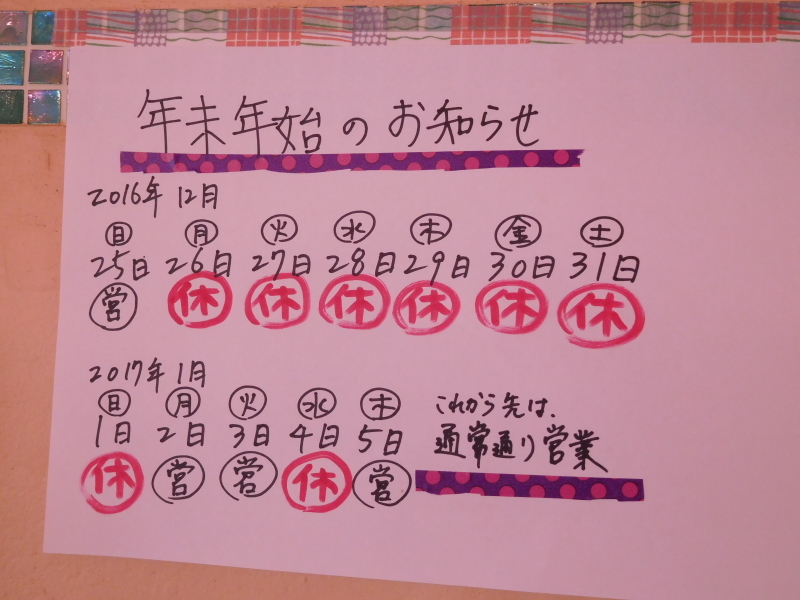 年末年始のお知らせ
2016年 12月
日 月 火 水 木 金 土
25日 26日 27日 28日 29日 30日 31日
営 休 休 休 休 休 休
2017年 1月
日 月 火 水 木
1日 2日 3日 4日 5日
休 営 営 休 営
これから先は、
通常通り営業